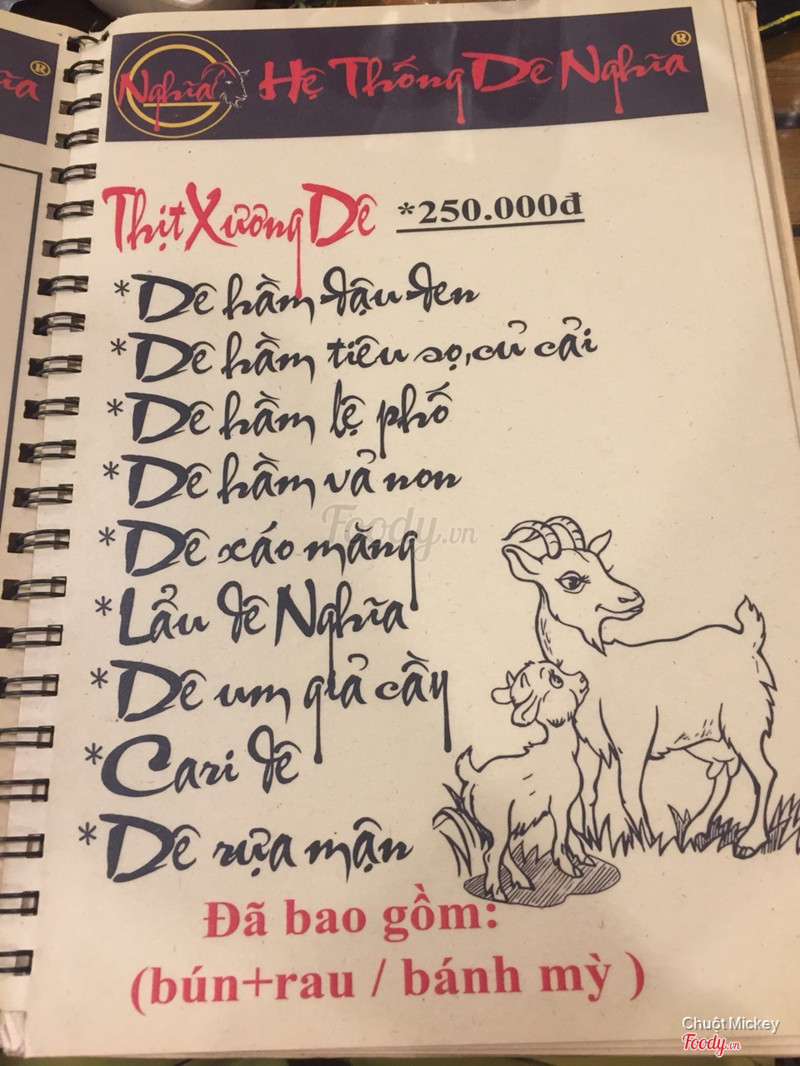 ĩa®
Nghĩa
Hệ Thống Dê Nghĩa®
Thịt Xương Dê *250.000đ
*Dê hầm đậu đen
*Dê hầm tiêu sọ, củ cải
*Dê hầm lệ phố
*Dê hầm vả non
*Dê xáo măng
*Lẩu dê Nghĩa
*Dê um giả cầy
*Cari dê
*Dê rựa mận
Đã bao gồm:
(bún+rau / bánh mỳ )
Foody.vn
Chuột Mickey
Foody.vn